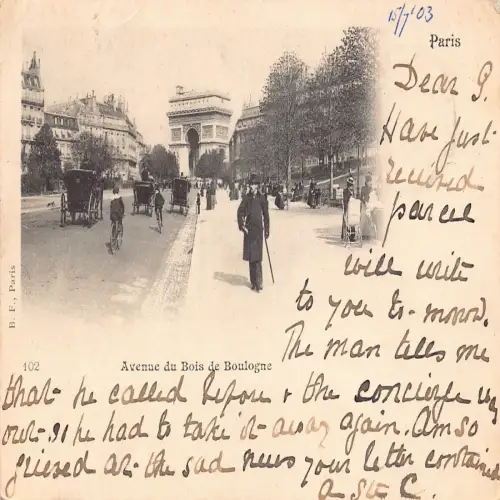 15/7/03
Paris
Dear G.
Have just
received
parcel
will write
to you to-morrow.
The man tells me
B. F., Paris
102 Avenue du Bois de Boulogne
that he called before & the concierge was
out - so he had to take it away again. Am so
grieved at the sad news your letter contained
C.